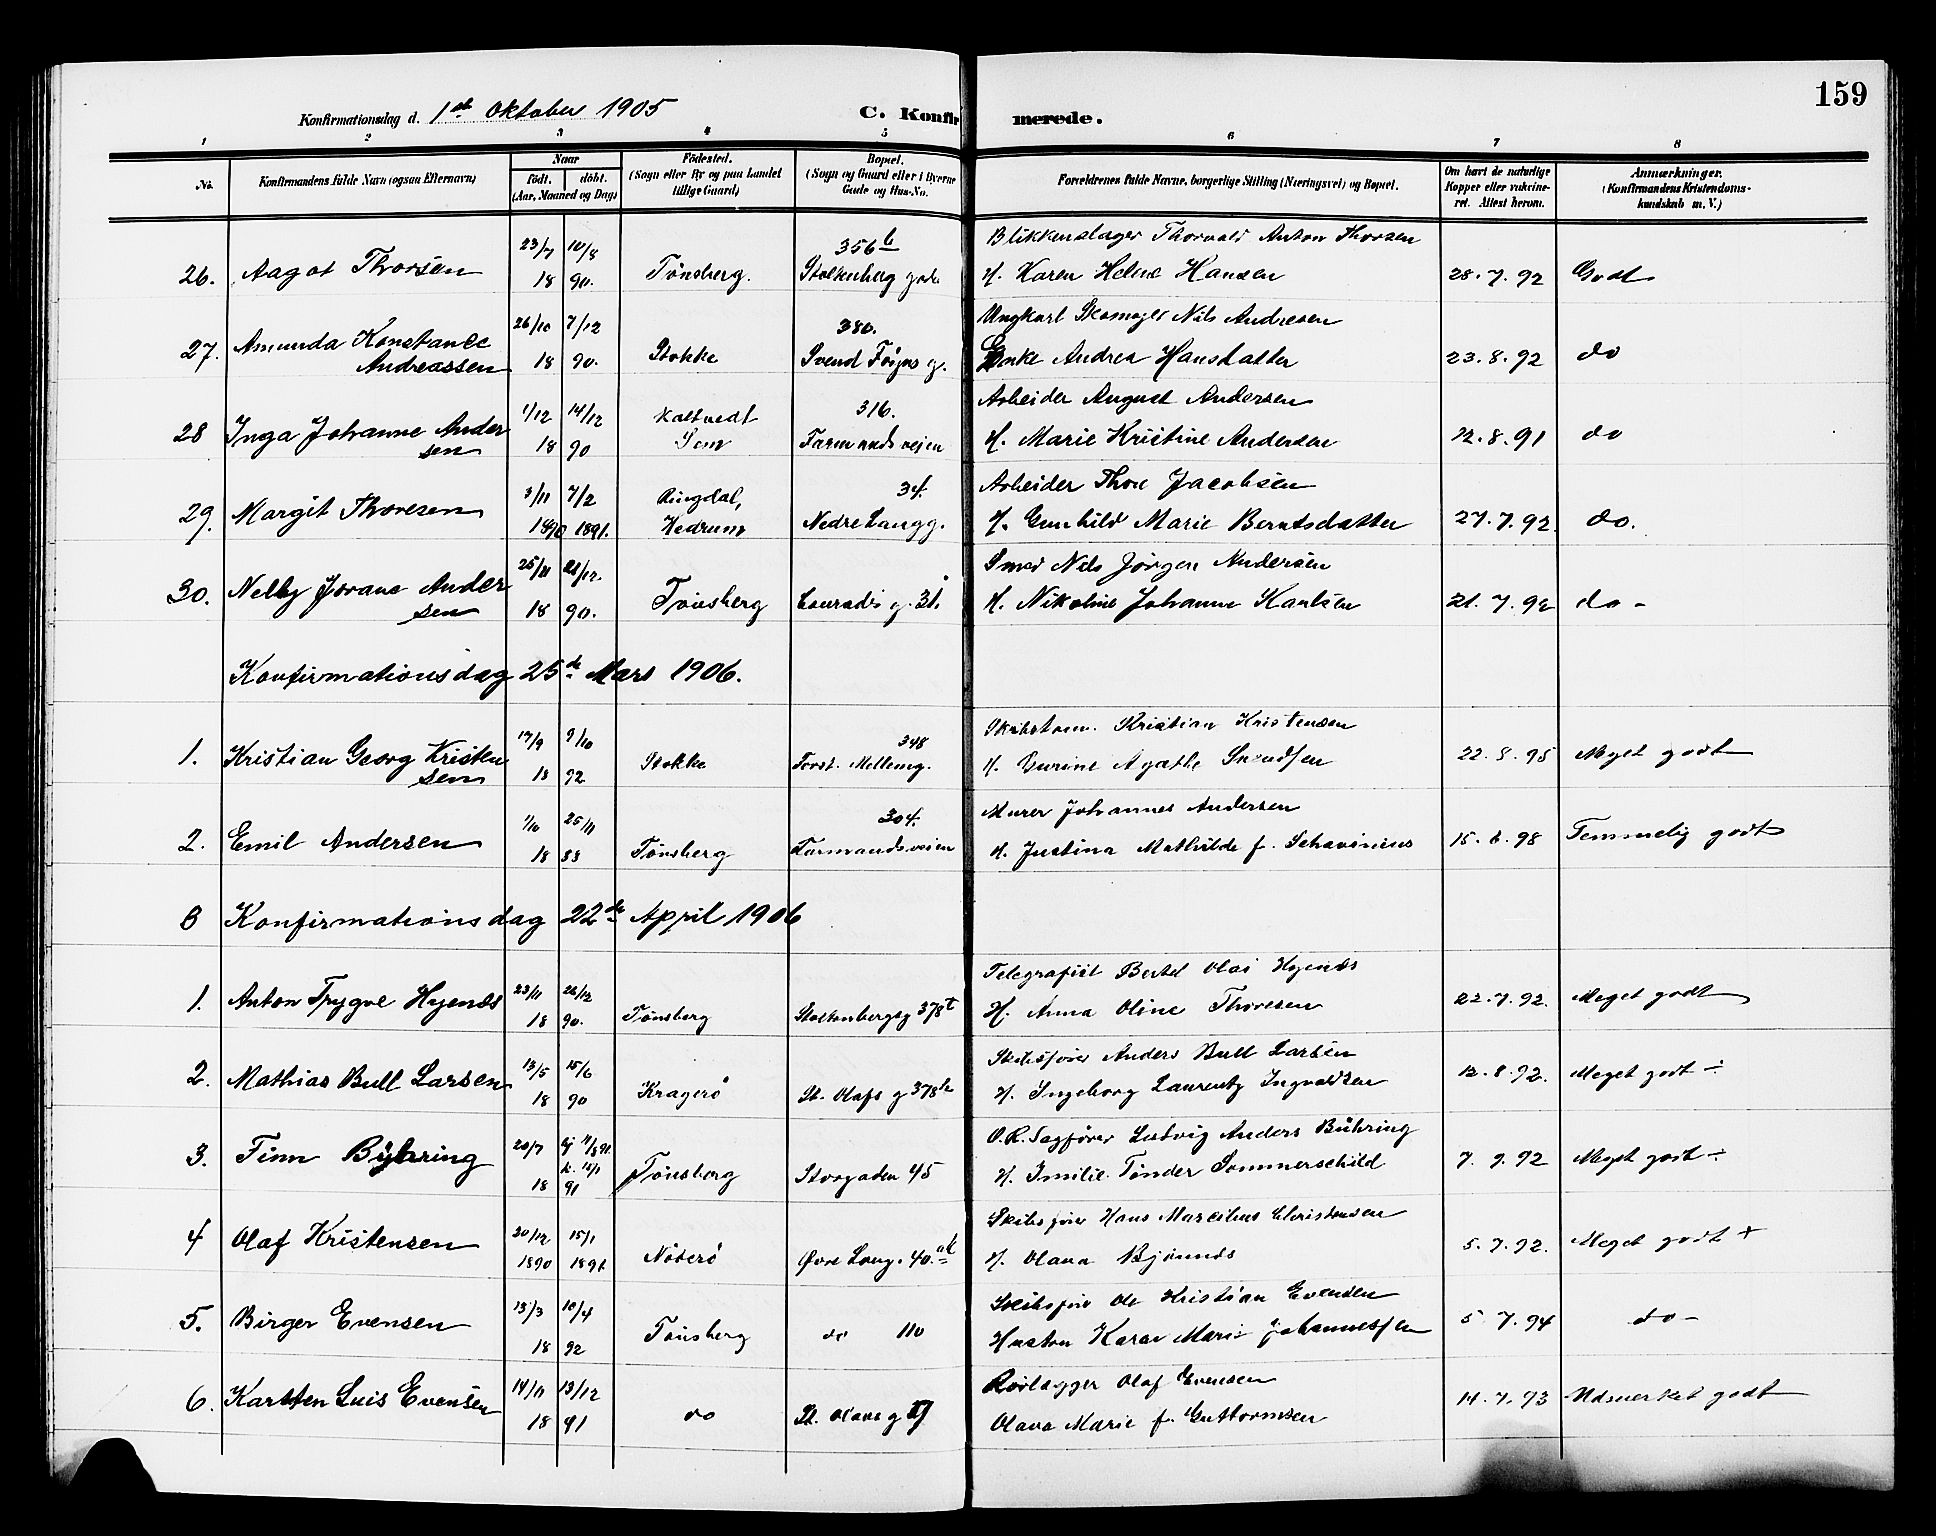 159
Konfirmationsdag d. 1ste Oktober 1905 C. Konfirmerede.
1 2 3 4 5 6 7 8
No. Konfirmandens fulde Navn (ogsaa Efternavn) Naar født. døbt. (Aar, Maaned og Dag) Fødested. (Sogn eller By og paa Landet tillige Gaard) Bopæl. (Sogn og Gaard eller i Byerne Gade og Hus-No. Forældrenes fulde Navne, borgerlige Stilling (Næringsvei) og Bopæl. Om havt de naturlige Kopper eller vakcineret. Attest herom. Anmærkninger. (Konfirmandens Kristendomskundskab m. V.)
23/7 10/8 356 b Blikkenslager Thorvald Anton Thorsen
26. Aagot Thorsen 18 90. Tönsberg. Stoltenberg gade H. Karen Helene Hansen 28.7.92 Godt
26/10 7/12 380. Ungkarl Skomager Nils Andresen
27. Amunda Konstance Andreassen 18 90. Stokke Svend Föyns g. Enke Andrea Hansdatter 23.8.92 do
1/12 14/12 316. Arbeider August Andersen
28 Inga Johanne Andersen 18 90 Sem Farmandsveien H. Marie Kristine Andersen 12.8.91 do
3/11 7/2 Ringdal, 34. Arbeider Thore Jacobsen
29. Margit Thoresen 1890 1891. Hedrum Nedre Langg. H. Gunhild Marie Berntsdatter 27.7.92. do.
25/11 21/12. Smed Nils Jörgen Andersen
30. Nelly Jorane Andersen 18 90. Tönsberg Conradis g. 31. H. Nikoline Johanne Karlsen 21.7.92 do -
Konfirmationsdag 25de Mars 1906.
17/9 9/10 348 Skibstöm. Kristian Kristensen
1. Kristian Georg Kristensen 18 92 Stokke Forst. Mellemg. H. Gurine Agathe Svendsen 22.8.95 Meget godt
1/10 25/11 304. Murer Johannes Andersen
2. Emil Andersen 18 88 Tönsberg Farmandsveien H. Justina Mathilde f. Schavinius 15.6.98 Temmelig godt
B Konfirmationsdag 22de April 1906
23/11 26/12 Telegrafist Bertel Olai Hyenæs
1. Anton Trygve Hyenæs 18 90. Tönsberg Stoltenbergsg 378 t H. Anna Oline Thoresen 22.7.92. Meget godt
13/5 15/6 Skibsfører Anders Bull Larsen
2. Mathias Bull Larsen 18 90 Kragerö St. Olafs g 378 H. Ingeborg Laurentz Ingvaldsen 12.8.92. Meget godt ÷
20/7 O.R. Sagfører Ludvig Anders Bühring
3. Finn Bühring 18 91 Tönsberg Storgaden 45 H. Emilie Tönder Sommerschild 7.9.92 Meget godt ÷
20/12 15/1 Skibsfører Hans Marcilius Christensen
4 Olaf Kristensen 1890 1891 Nöterö Øvre Lang. 40. H. Olava Bjönnes 5.7.92. Meget godt +
13/3 10/4 Skibsfører Ole Kristian Evensen
5. Birger Evensen 18 92 Tönsberg do 110 Hustru Karen Marie Johannessen 5 7.94 do -
14/11 13/12 Rörlægger Olaf Evensen
6. Karsten Luis Evensen 18 91 do St. Olavs g Olava Marie f. Guttormsen 14.7.93 Udmerket godt